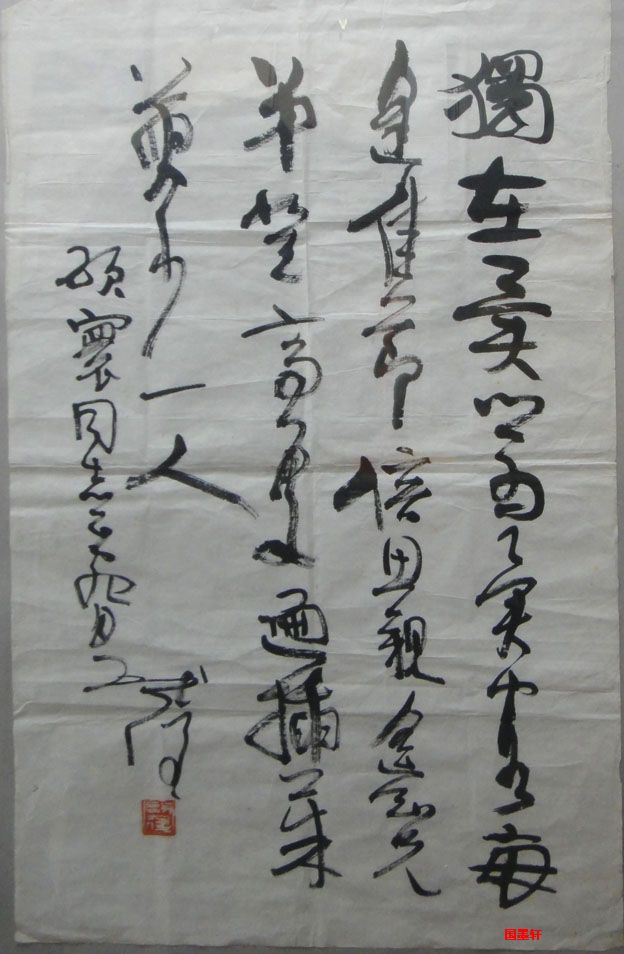 獨在異鄉為異客每
逢佳節倍思親遙知兄
弟登高處遍插茱
萸少一人
寰同志
国墨轩